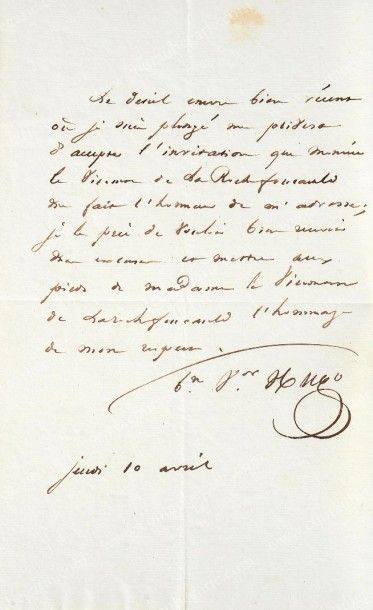 Le deuil encore bien récent
où je suis plongé me privera
d'accepter l'invitation que monsieur
le Vicomte de LaRochefoucauld
me fait l'honneur de m'adresser,
je le prie de vouloir bien recevoir
mes excuses et mettre aux
pieds de madame la Vicomtesse
de Larochefoucauld l'hommage
de mon respect.
Bn Vor Hugo
jeudi 10 avril